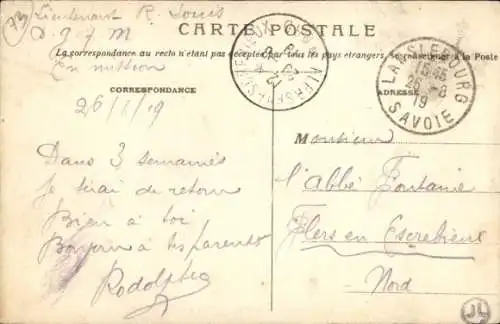 Lieutenant R. Louis
CARTE POSTALE
La correspondance au recto n'étant pas acceptée par tous les pays étrangers, se renseigner à la Poste
en mission
CORRESPONDANCE
ADRESSE
LANSLEBOURG
15 45
26 - 8
19
SAVOIE
26/8/19
Dans 3 semaines
Je serai de retour
Bien à toi
Bonjour à tes parents
Rodolphe
Monsieur
l'Abbé Fontaine
Flers en Escrebieux
Nord
JL